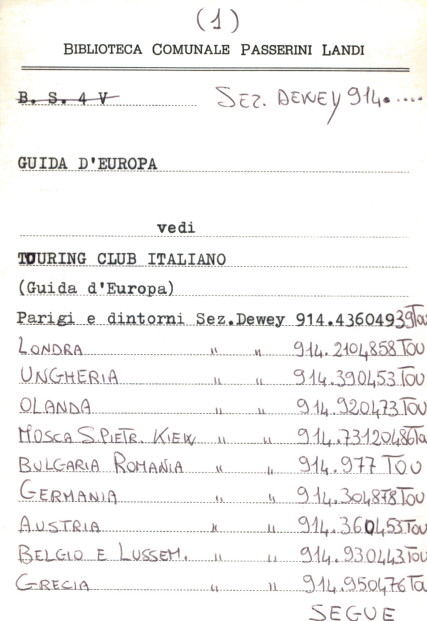 (1)
BIBLIOTECA COMUNALE PASSERINI LANDI
B. S. 4 V SEZ. DEWEY 914.....
GUIDA D'EUROPA
vedi
TOURING CLUB ITALIANO
(Guida d'Europa)
Parigi e dintorni Sez.Dewey 914.43604939Tou
LONDRA " " 914.2104858 TOU
UNGHERIA " " 914.390453 TOU
OLANDA " " 914.920473 TOU
MOSCA S.PIETR. KIEW " " 914.73120486Ta
BULGARIA ROMANIA " " 914.977 TOU
GERMANIA " " 914.304878 TOU
AUSTRIA " " 914.360453 TOU
BELGIO E LUSSEM. " " 914.930443 TOU
GRECIA " " 914.950476 Ta
SEGUE